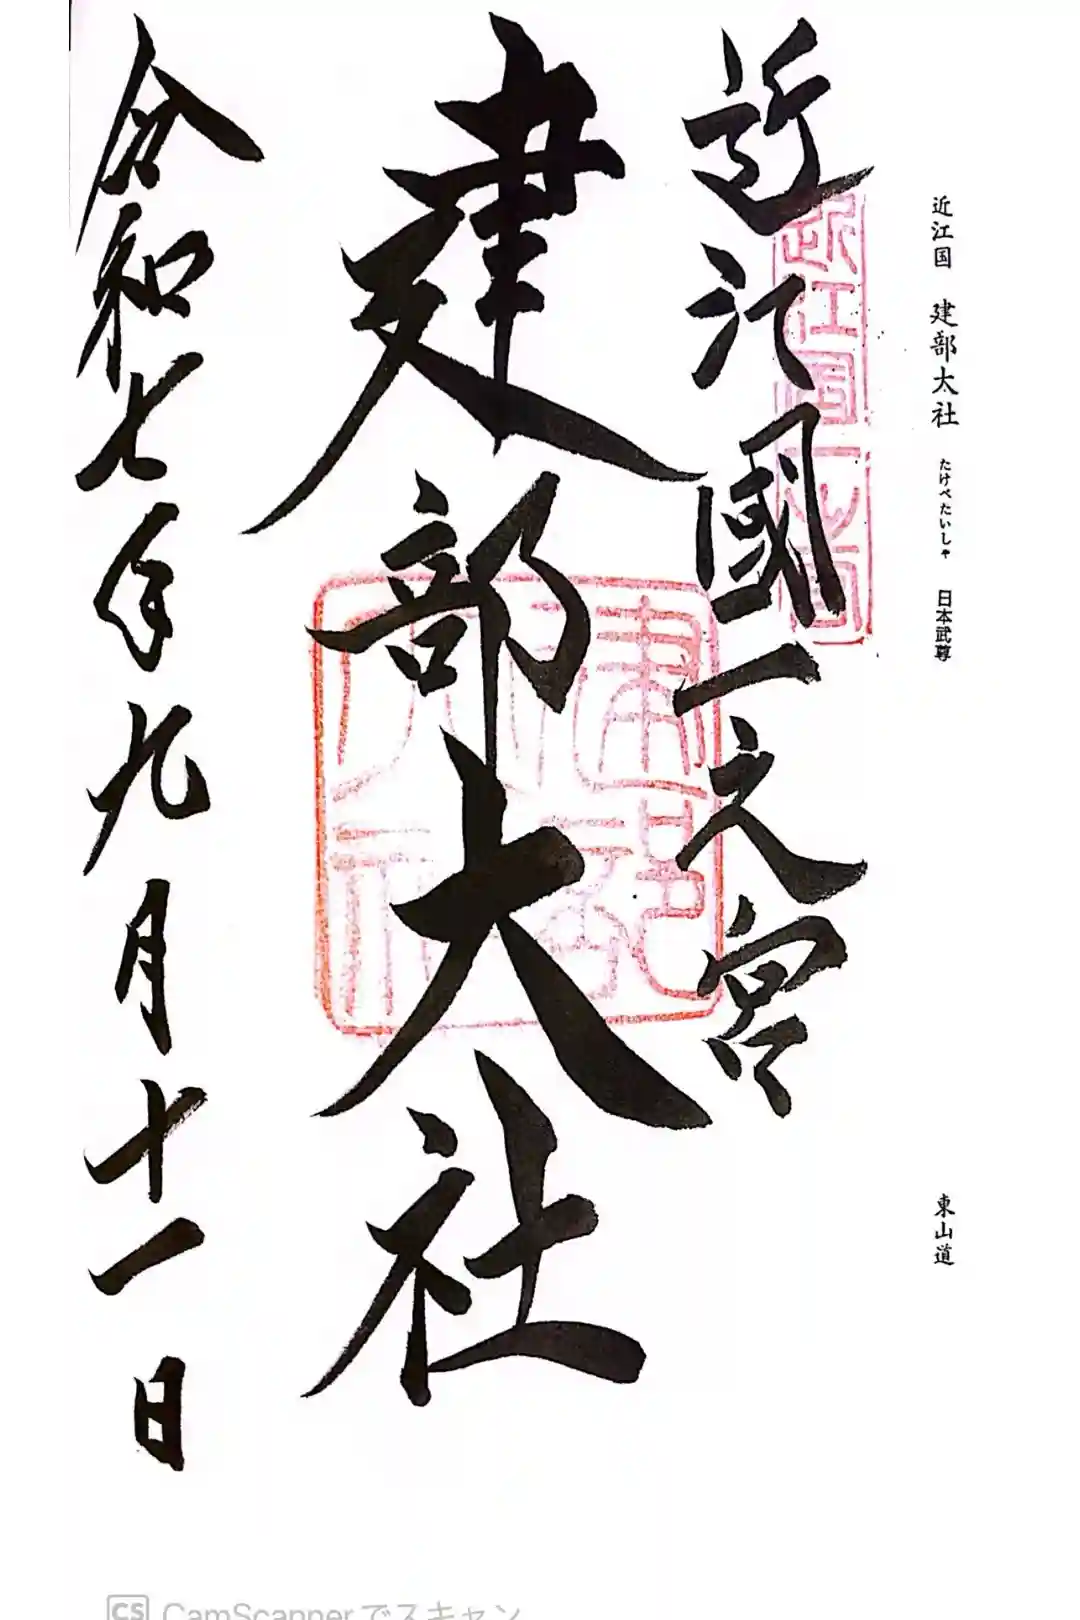 近江国 建部大社 たけべたいしゃ 日本武尊
東山道
近江國一之宮
近江国一之宮
建部大社
令和七年九月十一日
CS CamScannerでスキャン